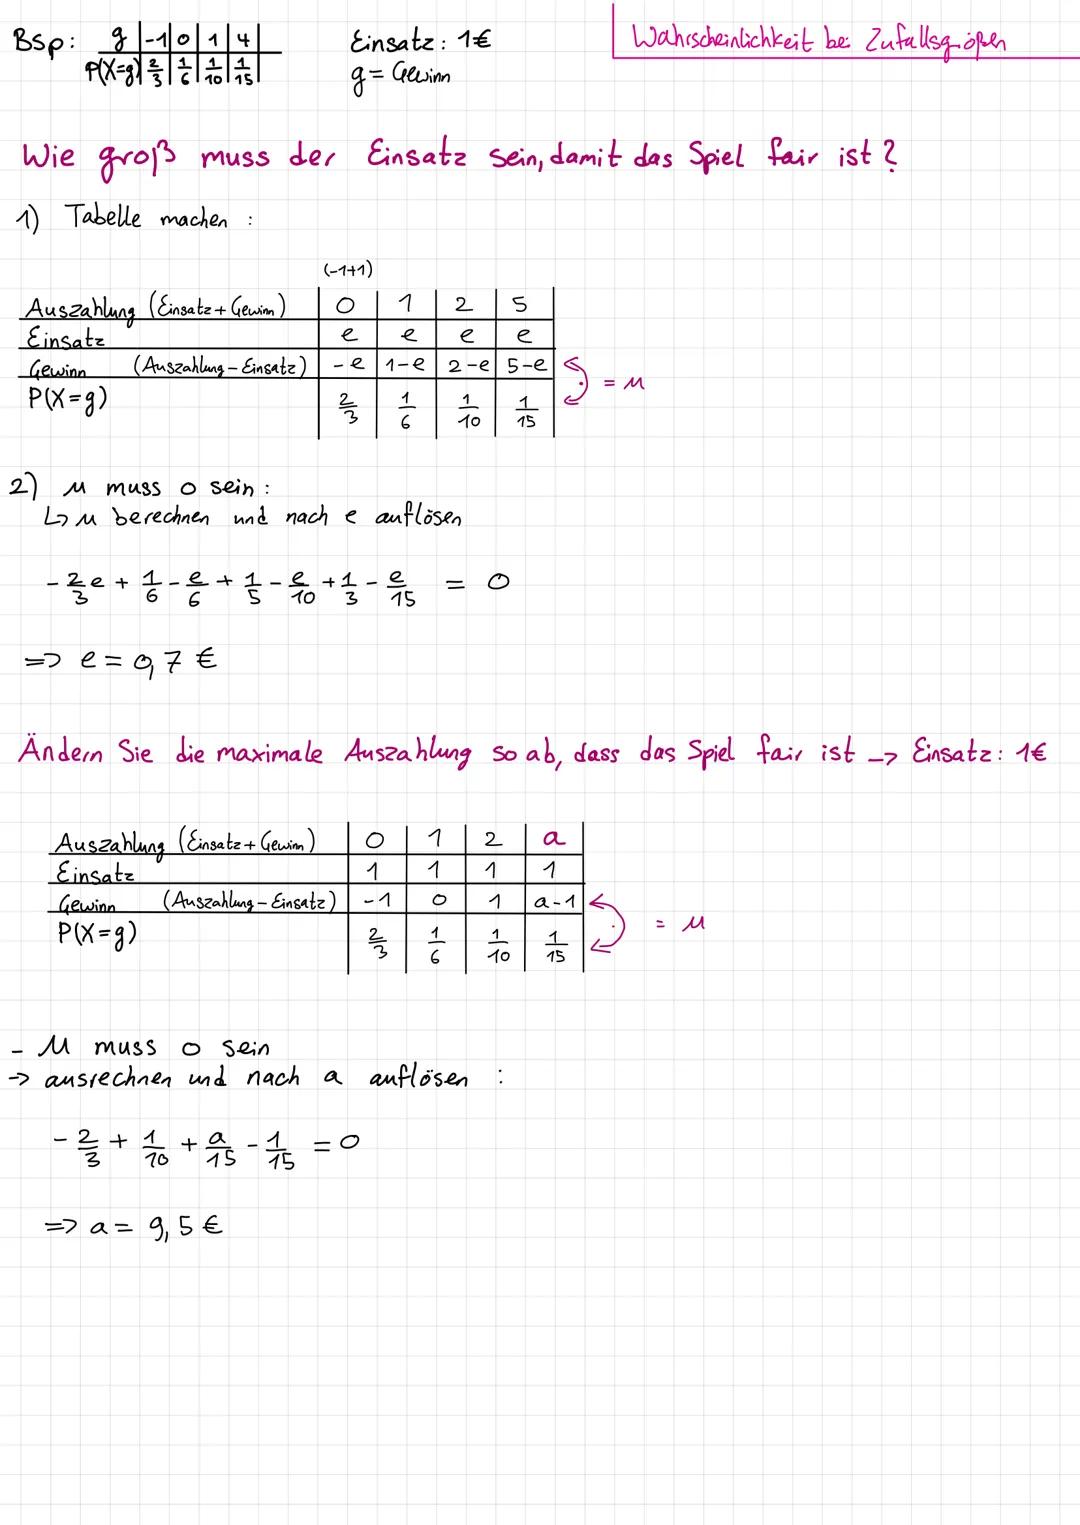 Wahrscheinlichkeit bei Zufallsgrößen
Bsp: g | -1 | 0 | 1 | 4 | Einsatz: 1€
P(X=g) | 2/3 | 1/6 | 1/10 | 1/15 | g = Gewinn
Wie groß muss der Einsatz sein, damit das Spiel fair ist?
1) Tabelle machen :
(-1+1)
Auszahlung (Einsatz + Gewinn) | 0 | 1 | 2 | 5
Einsatz | e | e | e | e
Gewinn (Auszahlung - Einsatz) | -e | 1-e | 2-e | 5-e
· = μ
P(X=g) | 2/3 | 1/6 | 1/10 | 1/15
2) μ muss 0 sein :
↳ μ berechnen und nach e auflösen
- 2/3 e + 1/6 - e/6 + 1/5 - e/10 + 1/3 - e/15 = 0
=> e = 0,7 €
Ändern Sie die maximale Auszahlung so ab, dass das Spiel fair ist -> Einsatz: 1€
Auszahlung (Einsatz + Gewinn) | 0 | 1 | 2 | a
Einsatz | 1 | 1 | 1 | 1
Gewinn (Auszahlung - Einsatz) | -1 | 0 | 1 | a-1
· = μ
P(X=g) | 2/3 | 1/6 | 1/10 | 1/15
- μ muss 0 sein
-> ausrechnen und nach a auflösen :
- 2/3 + 1/10 + a/15 - 1/15 = 0
=> a = 9,5 €